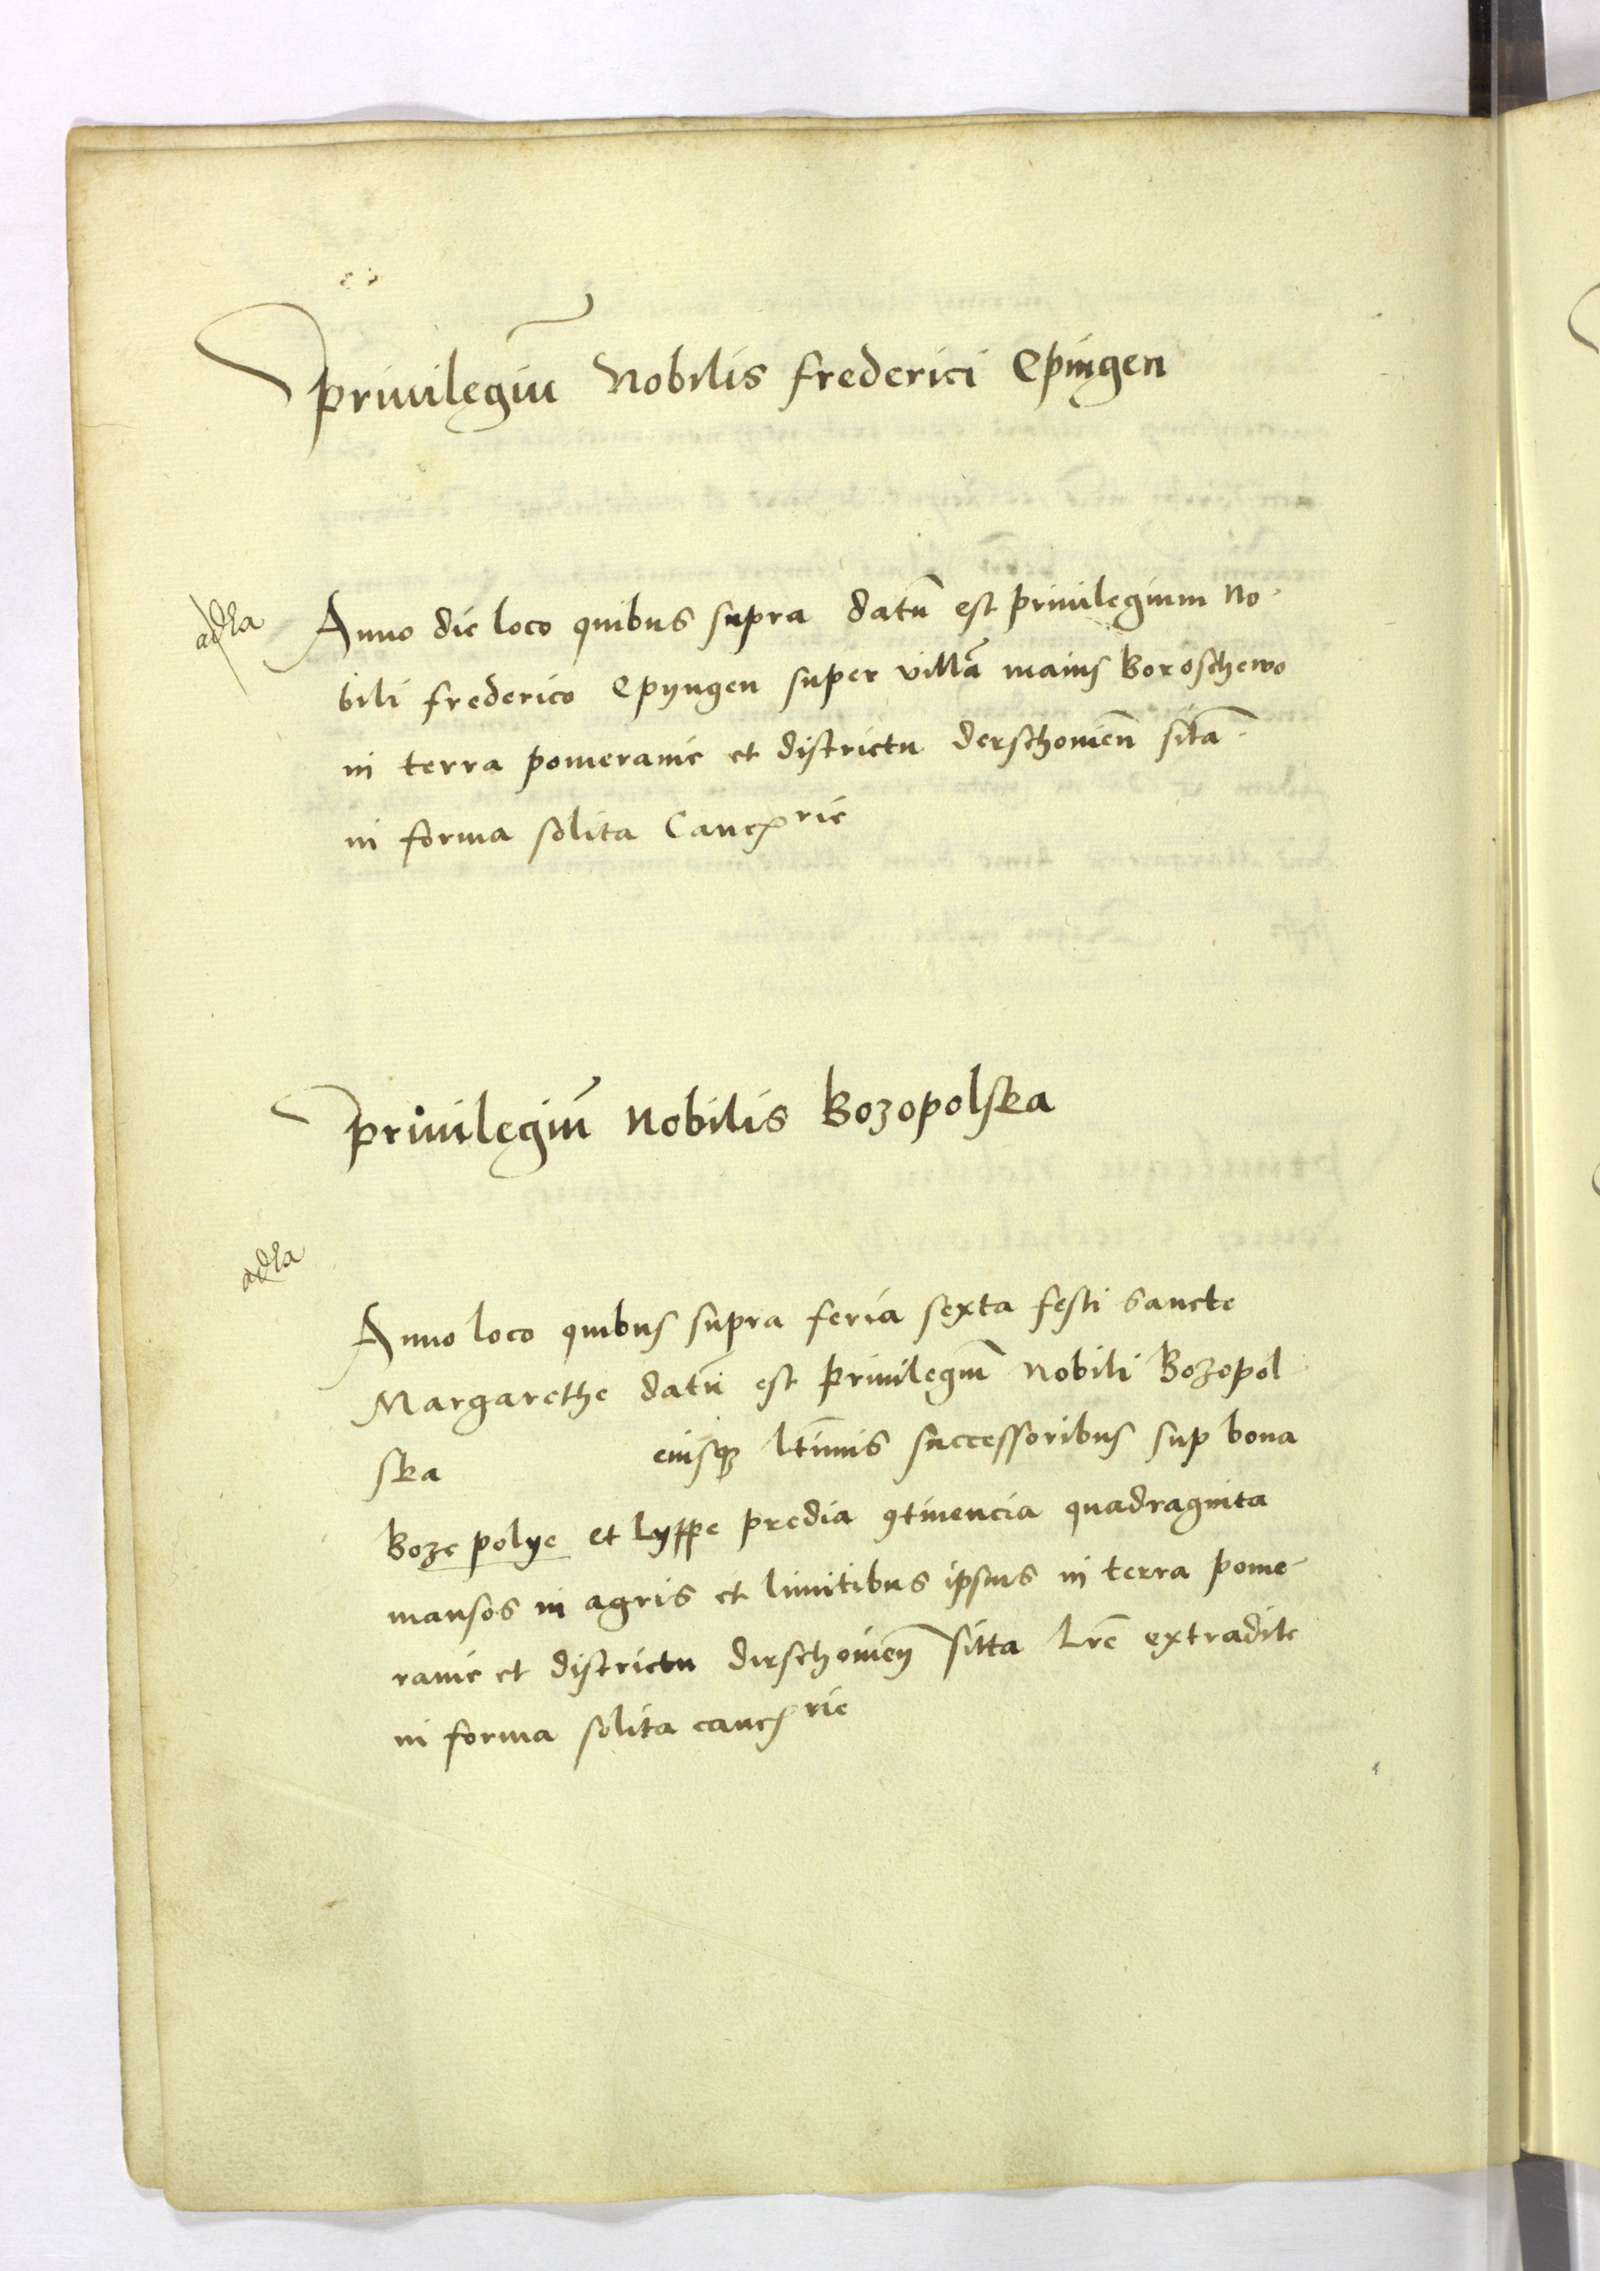 Priuilegiū Nobilis frederici Epingen
Anno die loco quibus supra datū est priuilegium No-
bili frederico Epyngen super villā maius Boroschewo
in terra pomeranie et districtu derschouieñ sitā
in forma solita Cancᵽrie
Priuilegiū Nobilis Bozopolska
Anno loco quibus supra feria sexta festi Sancte
Margarethe datū est priuilegiū Nobili Bozopol
ska eiusqꝫ ltimis successoribus sup bona
Boze polye et Lyppe predia ꝯtinencia quadraginta
mansos in agris et limitibus ipsius in terra pome-
ranie et districtu dirschouieñ sitta Lrē extradite
in forma solita cancᵽrie